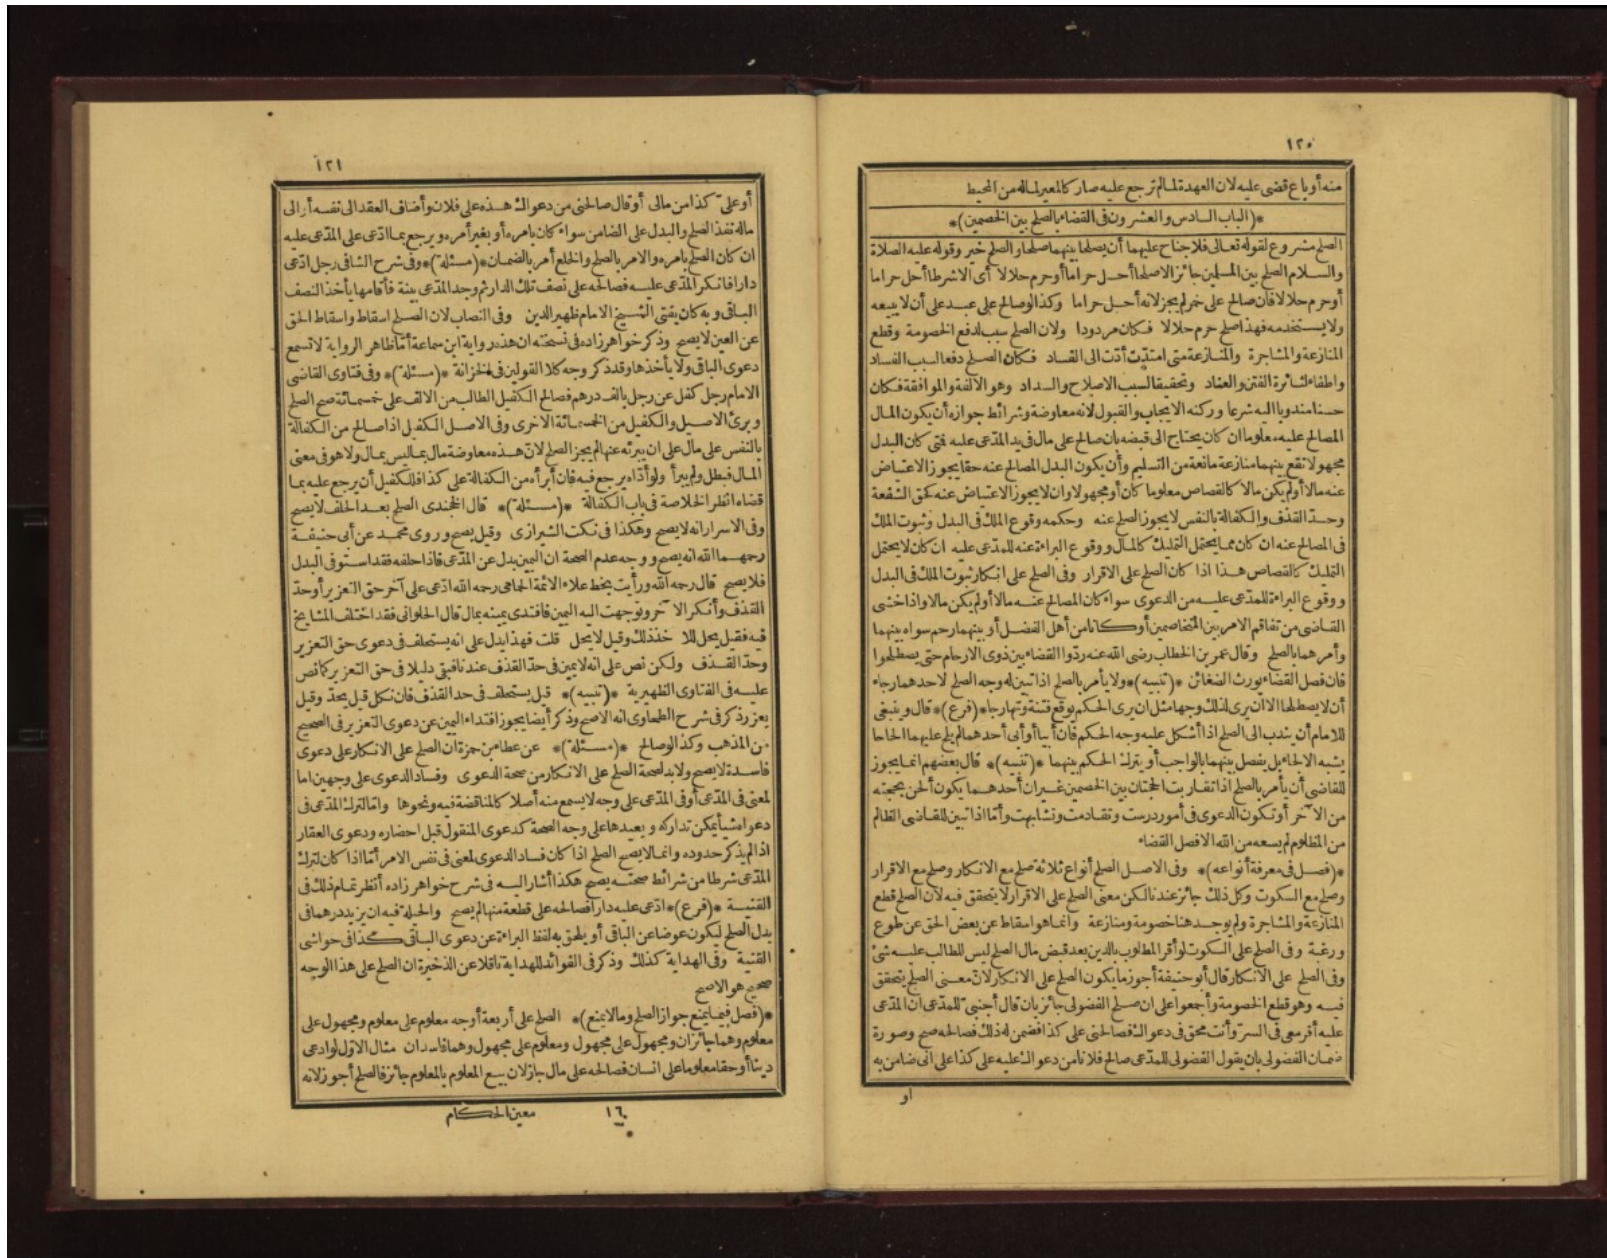 ١٢٠
منه أو باع قضى عليه لان العهدة لما لم ترجع عليه صار كالمعير لماله من المحيط
*(الباب السادس والعشرون فى القضاء بالصلح بين الخصمين)*
الصلح مشروع لقوله تعالى فلا جناح عليهما أن يصلحا بينهما صلحا والصلح خير وقوله عليه الصلاة
والسلام الصلح بين المسلمين جائز الا صلحا أحل حراما أو حرم حلالا أى الا شرطا أحل حراما
أو حرم حلالا فان صالح على خمر لم يجز لانه أحل حراما وكذا لو صالح على عبد على أن لا يبيعه
ولا يستخدمه فهذا صلح حرم حلالا فكان مردودا ولان الصلح سبب لدفع الخصومة وقطع
المنازعة والمشاجرة والمنازعة متى امتدت أدت الى الفساد فكان الصلح دفعا لسبب الفساد
واطفاء لثائرة الفتن والعناد وتحقيقا لسبب الاصلاح والسداد وهو الالفة والموافقة فكان
حسنا مندوبا اليه شرعا وركنه الايجاب والقبول لانه معاوضة وشرائط جوازه أن يكون المال
المصالح عليه معلوما ان كان يحتاج الى قبضه بان صالح على مال فى يد المدعى عليه فتى كان البدل
مجهولا تقع بينهما منازعة مانعة من التسليم وأن يكون البدل المصالح عنه حقا يجوز الاعتياض
عنه مالا أو لم يكن مالا كالقصاص معلوما كان أو مجهولا وان لا يجوز الاعتياض عنه كحق الشفعة
وحد القذف والكفالة بالنفس لا يجوز الصلح عنه وحكمه وقوع الملك فى البدل وثبوت الملك
فى المصالح عنه ان كان مما يحتمل التمليك كالمال ووقوع البراءة عنه للمدعى عليه ان كان لا يحتمل
التمليك كالقصاص هذا اذا كان الصلح على الاقرار وفى الصلح على انكار ثبوت الملك فى البدل
ووقوع البراءة للمدعى عليه من الدعوى سواء كان المصالح عنه مالا أو لم يكن مالا واذا خشى
القاضى من تفاقم الامر بين المتخاصمين أو كانا من أهل الفضل أو بينهما رحم سواه بينهما
وأمرهما بالصلح وقال عمر بن الخطاب رضى الله عنه ردوا القضاء بين ذوى الارحام حتى يصطلحوا
فان فصل القضاء يورث الضغائن *(تنبيه)* ولا يأمر بالصلح اذا تبين له وجه الصلح لاحدهما رجاء
أن لا يصطلحا الا ان يرى لذلك وجها مثل ان يرى الحكم يوقع فتنة وتهارجا *(فرع)* قال وينبغى
للامام أن يندب الى الصلح اذا أشكل عليه وجه الحكم فان أبيا أو أبى أحدهما لم يلح عليهما الحاحا
يشبه الالجاء بل يفصل بينهما بالواجب أو يترك الحكم بينهما *(تنبيه)* قال بعضهم انما يجوز
للقاضى أن يأمر بالصلح اذا تقاربت الحجتان بين الخصمين غير ان أحدهما يكون ألحن بحجته
من الآخر أو تكون الدعوى فى أمور درست وتقادمت وتشابهت وأما اذا تبين للقاضى الظالم
من المظلوم لم يسعه من الله الا فصل القضاء
*(فصل فى معرفة أنواعه)* وفى الاصل الصلح أنواع ثلاثة صلح مع الانكار وصلح مع الاقرار
وصلح مع السكوت وكل ذلك جائز عندنا لكن معنى الصلح على الاقرار لا يتحقق فيه لان الصلح قطع
المنازعة والمشاجرة ولم يوجد هنا خصومة ومنازعة وانما هو اسقاط عن بعض الحق عن طوع
ورغبة وفى الصلح على السكوت لو أقر المطلوب بالدين بعد قبض مال الصلح ليس للطالب عليه شئ
وفى الصلح على الانكار قال أبو حنيفة أجوز ما يكون الصلح على الانكار لان معنى الصلح يتحقق
فيه وهو قطع الخصومة وأجمعوا على ان صلح الفضولى جائز بان قال أجنبى للمدعى ان المدعى
عليه أقر معى فى السر وأنت محق فى دعواك فصالحنى على كذا فضمن له ذلك فصالحه صح وصورة
ضمان الفضولى بان يقول الفضولى للمدعى صالح فلانا من دعواك عليه على كذا على انى ضامن به
او
١٢١
أو على كذا من مالى أو قال صالحنى من دعواك هذه على فلان وأضاف العقد الى نفسه أو الى
ماله نفذ الصلح والبدل على الضامن سواء كان بامره أو بغير أمره ويرجع بما ادعى على المدعى عليه
ان كان الصلح بامره والامر بالصلح والخلع أمر بالضمان *(مسئلة)* وفى شرح الشافى رجل ادعى
دارا فانكر المدعى عليه فصالحه على نصف تلك الدار ثم وجد المدعى بينة فأقامها يأخذ النصف
الباقى وبه كان يفتى الشيخ الامام ظهير الدين وفى النصاب لان الصلح اسقاط واسقاط الحق
عن العين لا يصح وذكر خواهر زاده فى نسخته ان هذه رواية ابن سماعة أما ظاهر الرواية لا تسمع
دعوى الباقى ولا يأخذها وقد ذكر وجه كلا القولين فى الخزانة *(مسئلة)* وفى فتاوى القاضى
الامام رجل كفل عن رجل بالف درهم فصالح الكفيل الطالب من الالف على خمسمائة صح الصلح
وبرئ الاصيل والكفيل من الخمسمائة الاخرى وفى الاصل الكفيل اذا صالح من الكفالة
بالنفس على مال على ان يبرئه عنها لم يجز الصلح لان هذه معاوضة مال بما ليس بمال ولا هو فى معنى
المال فبطل ولم يبرأ ولو أداه يرجع فيه فان أبرأه من الكفالة على كذا فللكفيل أن يرجع عليه بما
قضاه انظر الخلاصة فى باب الكفالة *(مسئلة)* قال الخجندى الصلح بعد الحلف لا يصح
وفى الاسرار انه لا يصح وهكذا فى نكت الشيرازى وقيل يصح وروى محمد عن أبى حنيفة
رحمهما الله انه يصح ووجه عدم الصحة ان اليمين بدل عن المدعى فاذا حلفه فقد استوفى البدل
فلا يصح قال رحمه الله ورأيت بخط علاء الائمة الحمامى رحمه الله ادعى على آخر حق التعزير أو حد
القذف وأنكر الآخر وتوجهت اليه اليمين فافتدى يمينه بمال قال الحلوانى فقد اختلف المشايخ
فيه فقيل يحل للآخذ ذلك وقيل لا يحل قلت فهذا يدل على انه يستحلف فى دعوى حق التعزير
وحد القذف ولكن نص على انه لا يمين فى حد القذف عندنا فبقى دليلا فى حق التعزير كما نص
عليه فى الفتاوى الظهيرية *(تنبيه)* قيل يستحلف فى حد القذف فان نكل قيل يحد وقيل
يعزر ذكر فى شرح الطحاوى انه الاصح وذكر أيضا يجوز افتداء اليمين عن دعوى التعزير فى الصحيح
من المذهب وكذا لو صالح *(مسئلة)* عن عطاء بن حمزة ان الصلح على الانكار على دعوى
فاسدة لا يصح ولا بد لصحة الصلح على الانكار من صحة الدعوى وفساد الدعوى على وجهين اما
لمعنى فى المدعى أو فى المدعى على وجه لا يسمع منه أصلا كالمناقضة فيه ونحوها واما لترك المدعى فى
دعواه شيأ يمكن تداركه ويعيدها على وجه الصحة كدعوى المنقول قبل احضاره ودعوى العقار
اذا لم يذكر حدوده وانما لا يصح الصلح اذا كان فساد الدعوى لمعنى فى نفس الامر أما اذا كان لترك
المدعى شرطا من شرائط صحته يصح هكذا أشار اليه فى شرح خواهر زاده أنظر تمام ذلك فى
القنية *(فرع)* ادعى عليه دارا فصالحه على قطعة منها لم يصح والحيلة فيه ان يزيد درهما فى
بدل الصلح ليكون عوضا عن الباقى أو يلحق به لفظ البراءة عن دعوى الباقى كذا فى حواشى
القنية وفى الهداية كذلك وذكر فى الفوائد للهداية ناقلا عن الذخيرة ان الصلح على هذا الوجه
صحيح هو الاصح
*(فصل فيما يمنع جواز الصلح وما لا يمنع)* الصلح على أربعة أوجه معلوم على معلوم ومجهول على
معلوم وهما جائزان ومجهول على مجهول ومعلوم على مجهول وهما فاسدان مثال الاول لو ادعى
دينا أو حقا معلوما على انسان فصالحه على مال جاز لان بيع المعلوم بالمعلوم جائز فالصلح أجوز لانه
١٦
معين الحكام